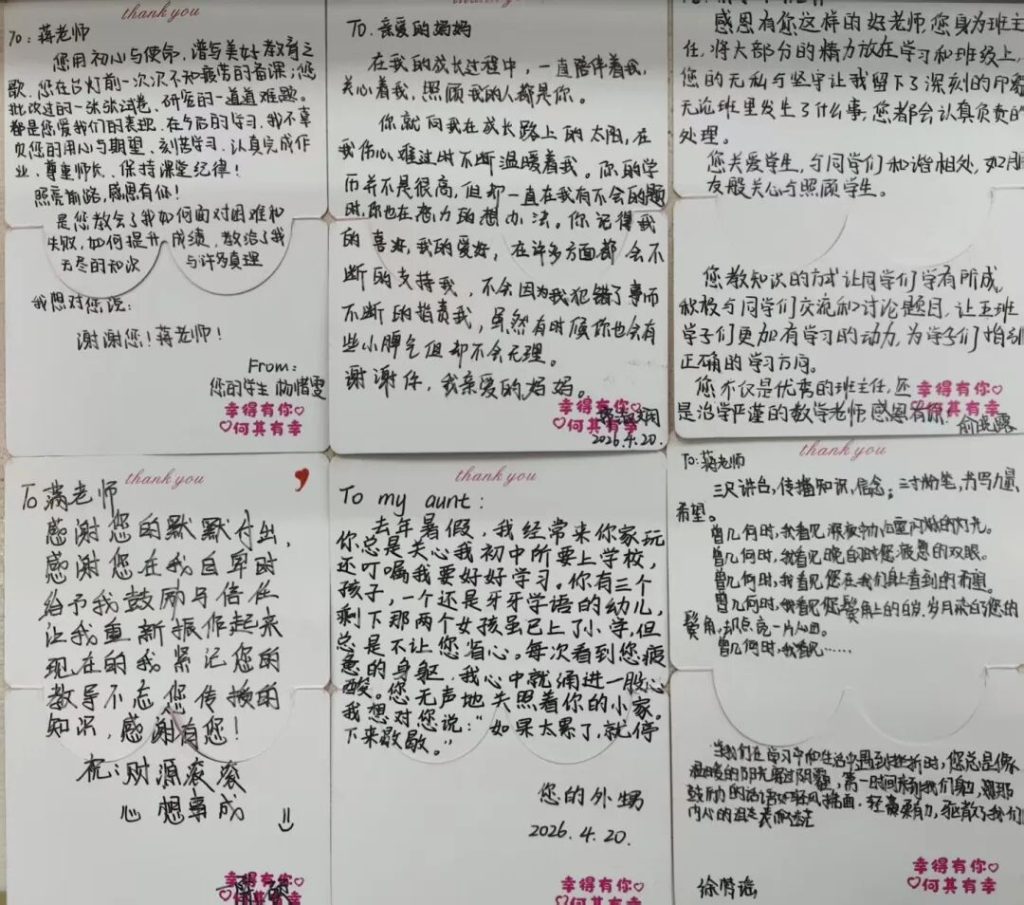 thank you
To:蒋老师
您用初心与使命,谱写美好教育之
歌.您在台灯前一次次不知疲倦的备课;您
批改过的一张张试卷、研究的一道道难题.
都是您爱我们的表现.在今后的学习,我不辜
负您的用心与期望、刻苦学习、认真完成作
业、尊重师长、保持课堂纪律!
照亮前路,感恩有你!
是您教会了我如何面对困难和
失败,如何提升成绩,教给了我
无尽的知识与许多真理
我想对您说:
谢谢您!蒋老师!
From:
您的学生
幸得有你
何其有幸
To.亲爱的妈妈
在我的成长过程中,一直陪伴着我,
关心着我,照顾我的人都是你。
你就向我在成长路上的太阳,在
我伤心难过时不断温暖着我。你的学
历并不是很高,但却一直在我有不会的题
时,你也在想办法。你记得我
的喜好,我的爱好,在许多方面都会不
断的支持我,不会因为我犯错了事而
不断的指责我,虽然有时候你也会有
些小脾气但却不会无理。
谢谢你,我亲爱的妈妈。
幸得有你
何其有幸
2026.4.20.
感恩有您这样的好老师您身为班主
任,将大部分的精力放在学习和班级上,
您的无私与坚守让我留下了深刻的印象
无论班里发生了什么事,您都会认真负责的
处理。
您关爱学生,与同学们和谐相处,如朋
友般关心与照顾学生。
您教知识的方式让同学们学有所成,
积极与同学们交流和讨论题目,让五班
学子们更加有学习的动力,为学子们指引
正确的学习方向。
您不仅是优秀的班主任,还
是治学严谨的数学老师感恩有你!
幸得有你
何其有幸
thank you
To蒋老师
感谢您的默默付出,
感谢您在我自卑时
给予我鼓励与信任
让我重新振作起来
现在的我紧记您的
教导不忘您传授的
知识,感谢有您!
祝:财源滚滚
心想事成
幸得有你
何其有幸
thank you
To my aunt:
去年暑假,我经常来你家玩
你总是关心我初中所要上学校,
还叮嘱我要好好学习。你有三个
孩子,一个还是牙牙学语的幼儿,
剩下那两个女孩虽已上了小学,但
总是不让您省心。每次看到您疲
惫的身躯,我心中就涌进一股心
酸。您无声地关照着你的小家。
我想对您说:“如果太累了,就停
下来歇歇。”
您的外甥
2026.4.20.
幸得有你
何其有幸
thank you
To:蒋老师
三尺讲台,传播知识,信念;三寸粉笔,书写力量、
希望。
曾几何时,我看见深夜办公室闪烁的灯光。
曾几何时,我看见晚自时您疲惫的双眼。
曾几何时,我看见您在我们身上看到的希望。
曾几何时,我看见您鬓角上的白岁,岁月染白了您的
鬓角,却点亮一片心田。
曾几何时,我看见……
当我们在学习中和生活中遇到挫折时,您总是像
温暖的阳光穿过阴霾,第一时间来到我们身边,
鼓励的话语如轻风拂面,轻柔有力,驱散了我们
内心的
徐
幸得有你
何其有幸